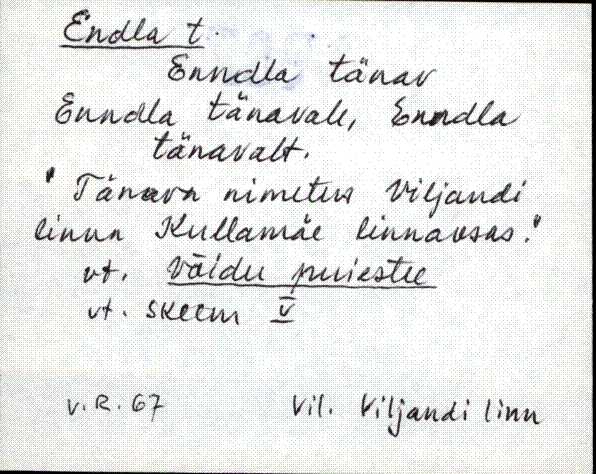 Endla t.
Enndla tänav
Enndla tänavale, Enndla
tänavalt.
"Tänava nimetus Viljandi
linna Kullamäe linnaosas."
vt. Võidu puiestee
vt. skeem V
V.R. 67 Vil. Viljandi linn